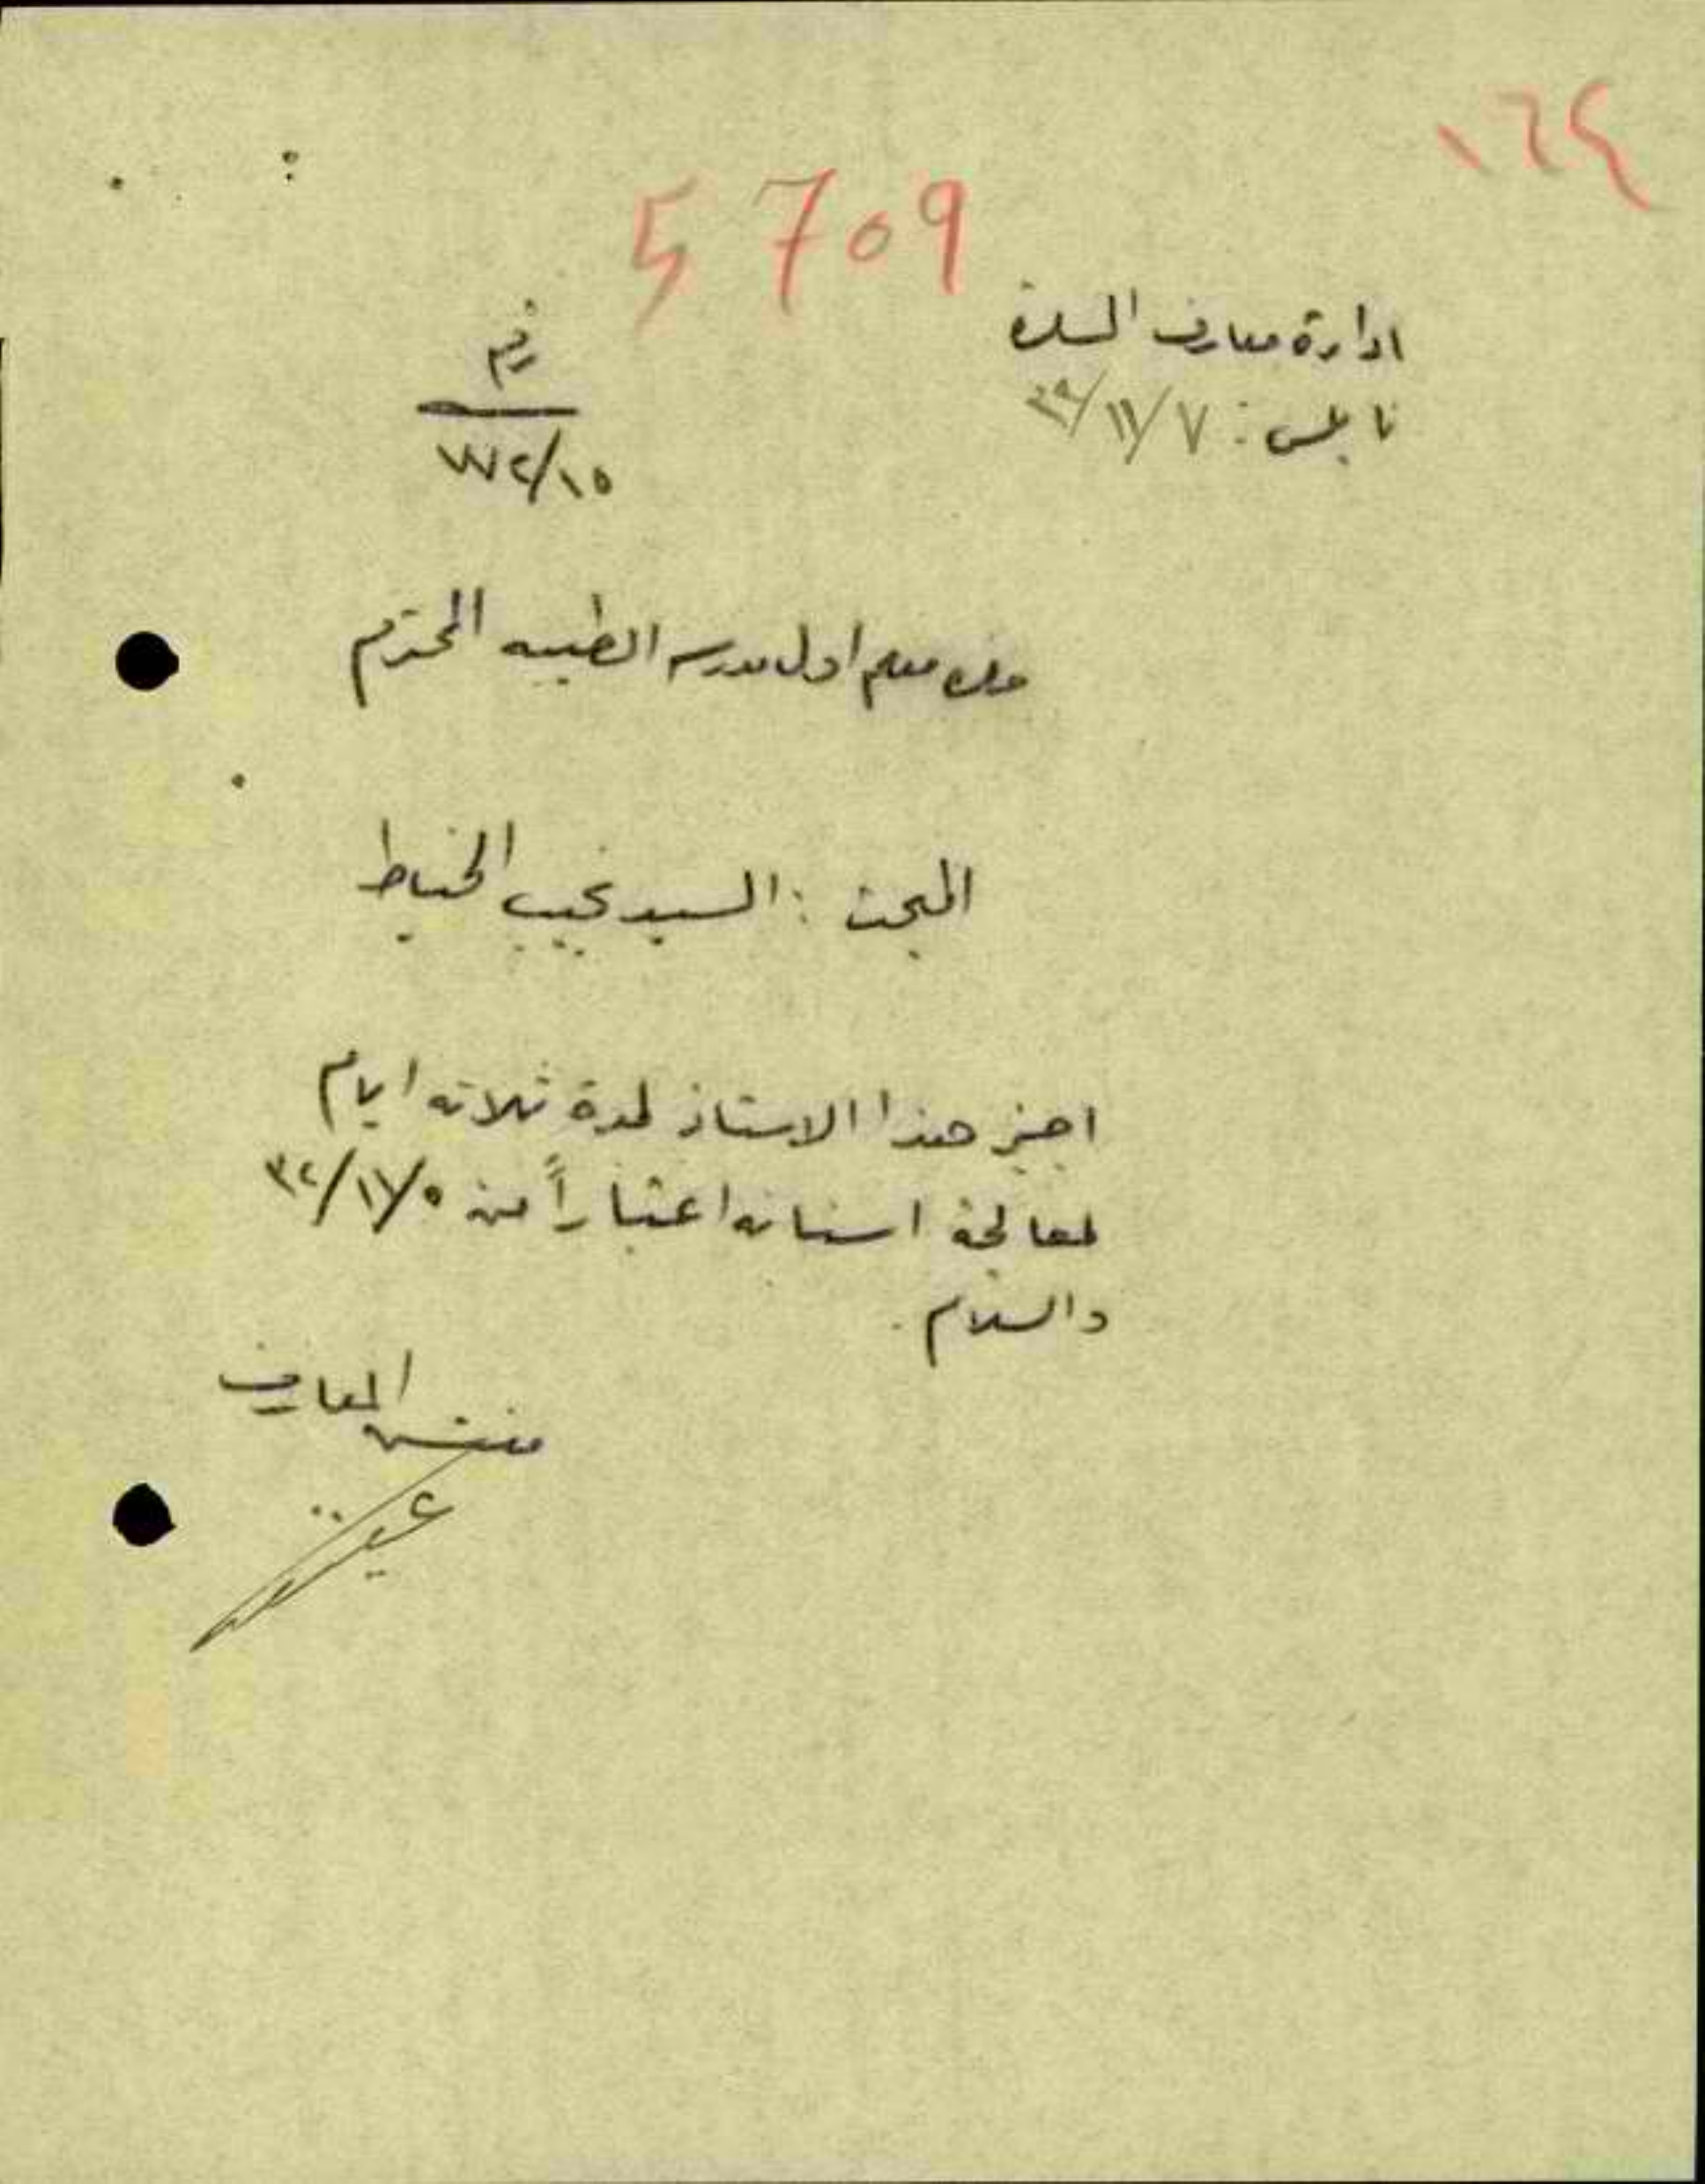 ١٦٤
5709
ادارة معارف السامرة
نابلس: ٧/١١/٣٢
رقم
١٥/
حضرة معلم اول مدرسة الطيبه المحترم
المبحث : السيد نجيب الخياط
اجيز هذا الاستاذ لمدة ثلاثه ايام
لمعالجة اسنانه اعتباراً من ٥/١١/٣٢
والسلام .
مفتش المعارف